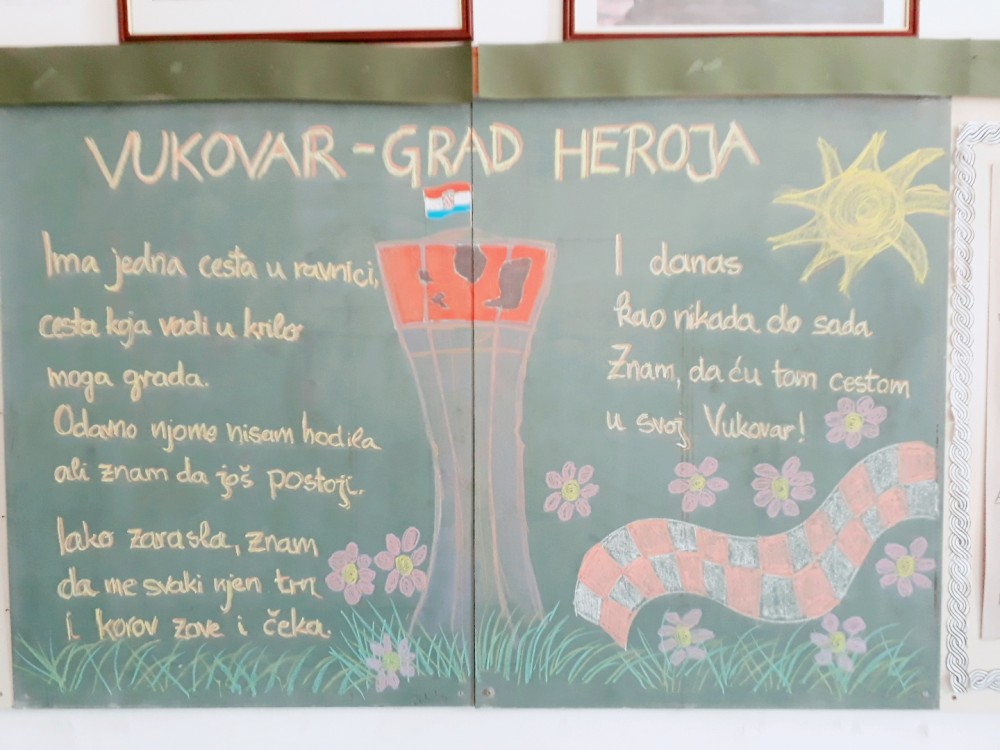 VUKOVAR - GRAD HEROJA
Ima jedna cesta u ravnici,
cesta koja vodi u krilo
moga grada.
Odavno njome nisam hodila
ali znam da još postoji.
Iako zarasla, znam
da me svaki njen trn
i korov zove i čeka.
I danas
kao nikada do sada
Znam, da ću tom cestom
u svoj Vukovar!